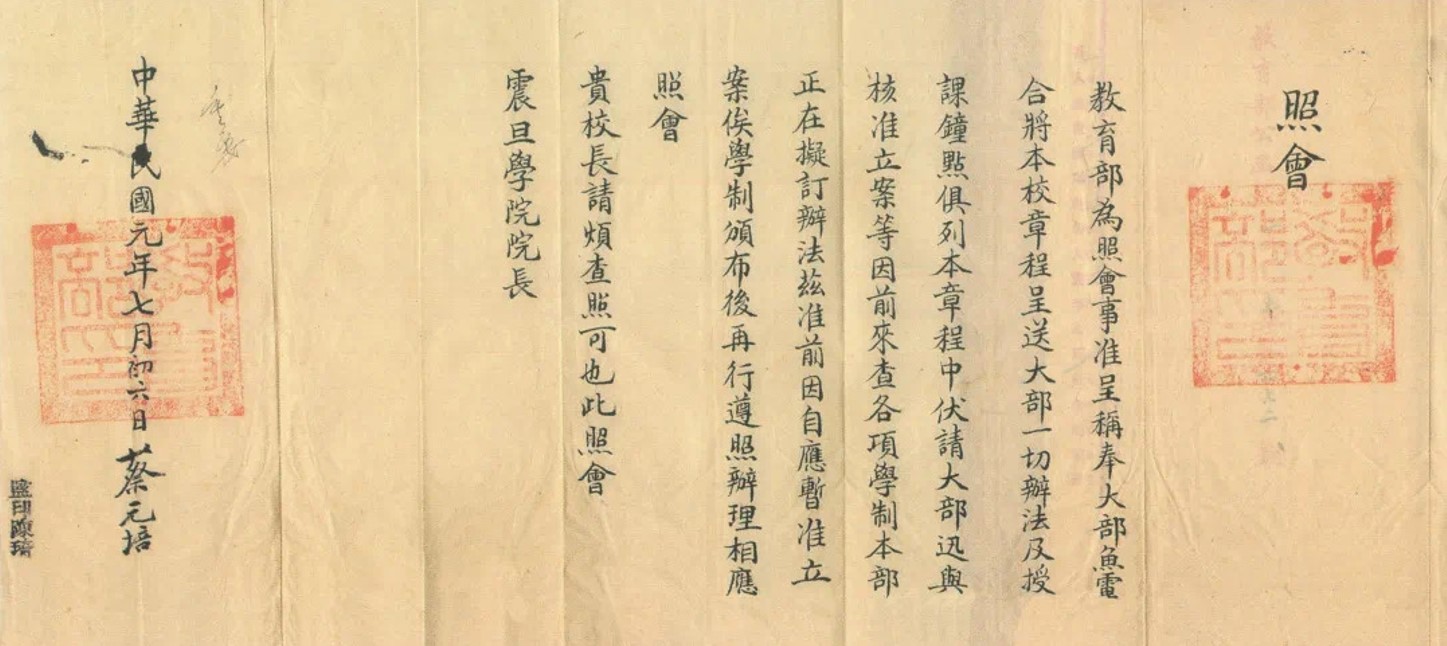 照會
教育部為照會事准呈稱奉大部魚電
合將本校章程呈送大部一切辦法及授
課鐘點俱列本章程中伏請大部迅與
核准立案等因前來查各項學制本部
正在擬訂辦法茲准前因自應暫准立
案俟學制頒布後再行遵照辦理相應
照會
貴校長請煩查照可也此照會
震旦學院院長
中華民國元年七月初六日 蔡元培
教育部印
教育部印
監印陳琦